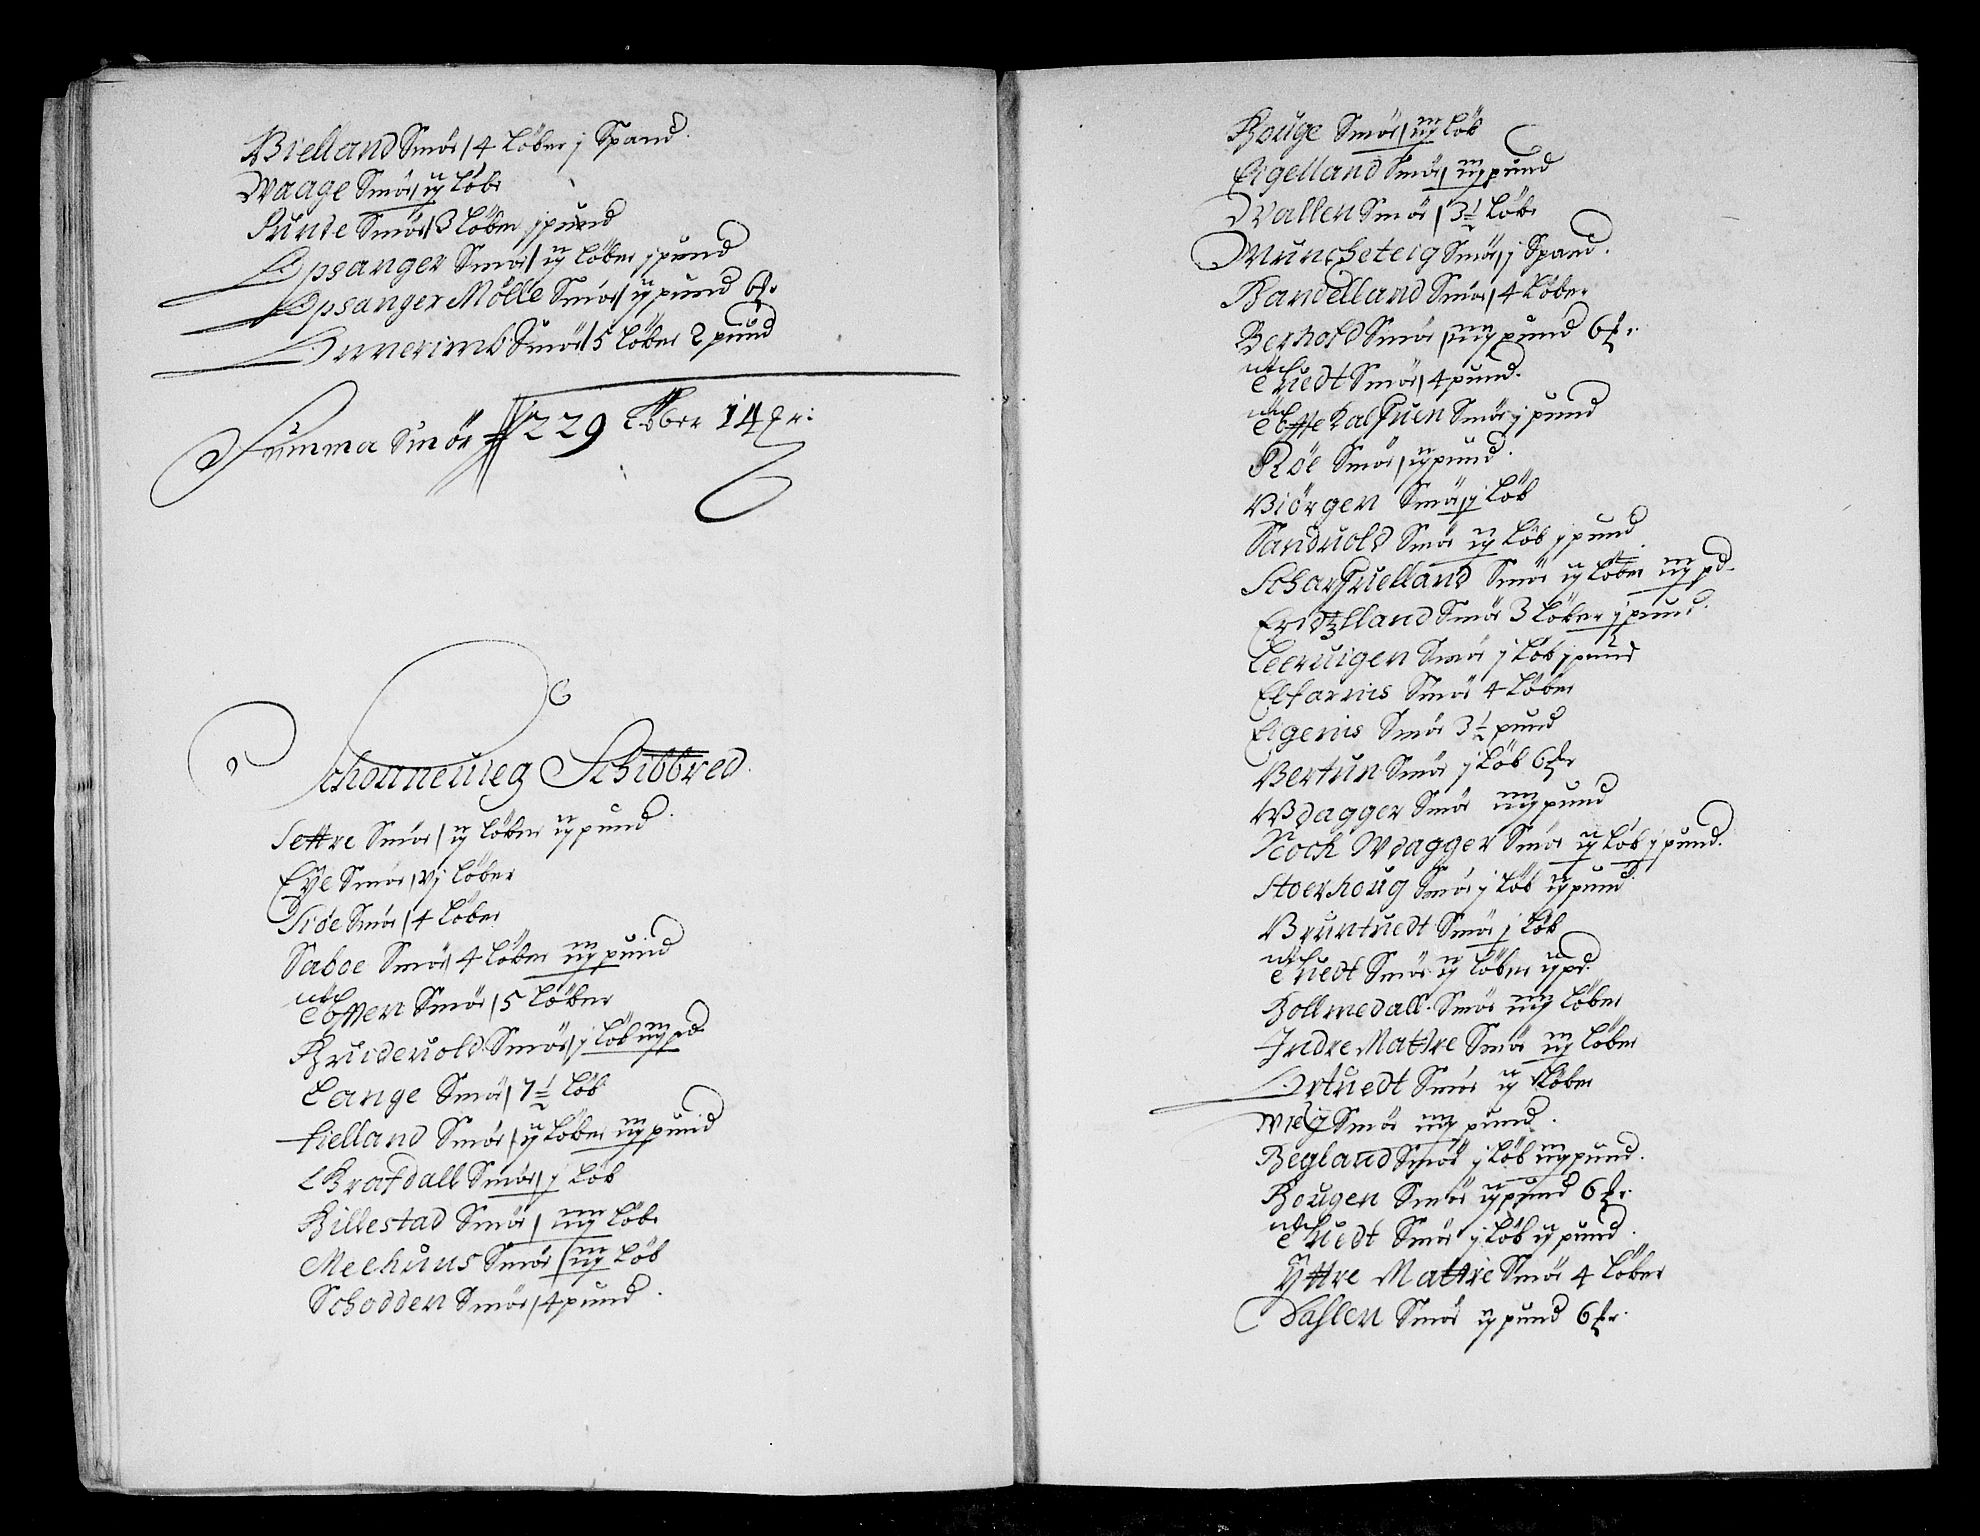 Bielland Smör / 4 Löber j Spand.
Waage Smör / ij Löbr
Sunde Smör / 3 Löber j pund
Opsanger Smör / ij Löber j pund
Opsanger Mölle Smör / ij pund 6 ℔r
Smör / 5 Löber 2 pund
Summa Smör // 229 Löber 14 ℔r:
Schonneuieg Schibbred.
Settre Smör / ij Löber ij pund.
Eye Smör / vj Löber
Tide Smör / 4 Löber
Saboe Smör / 4 Löber iij pund
Ebtten Smör / 5 Löber
Bruideuold Smör / j Löb iij pd
Lange Smör / 7½ Löb
Fielland Smör / ij Löber iij pund
Bratdall Smör / j Löb
Billestad Smör / iiij Löbr
Meehuus Smör / iij Löb
Schodden Smör / 4 pund.
Houge Smör / iij Löb
Eigelland Smör / iij pund
Wallen Smör / 3½ Löbr
Muncheteig Smör / j Spand.
Bandelland Smör / 4 Löber
Berhold Smör / iiij pund 6 ℔r.
Tuedt Smör / 4 pund.
Smör j pund
Röe Smör / ij pund.
Biörgen Smör j Löb
Sanduold Smör ij Löb j pund.
Scharffuelland Smör ij Löber iij pd.
Eridtzlland Smör 3 Löber j pund.
Leeruigen Smör j Löb j pund
Elfarnis Smör 4 Löber
Eigenis Smör 3½ pund
Bertun Smör j Löb 6 ℔r
Wdagger Smör iiij pund
Noch Wdagger Smör ij Löb j pund.
Stoerhoug Smör j Löb ij pund
Bruntuedt Smör j Löb
Tuedt Smör ij Löber ij pd.
Bollmedall. Smör iiij Löber
Indre Mattre Smör iij Löber
Ortuedt Smör ij Löber
Wieg Smör iiij pund.
Begland Smör j Löb iij pund.
Hougen Smör ij pund 6 ℔r.
Tuedt Smör j Löb ij pund.
Yttre Mattre Smör 4 Löber
Dahlen Smör ij pund 6 ℔r.